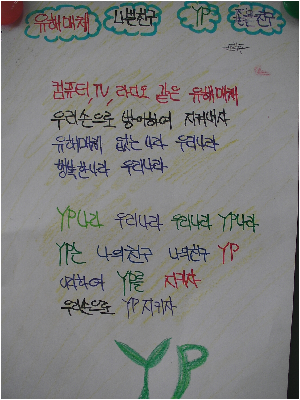 유해매체 나쁜친구 YP 좋은친구
컴퓨터, TV, 라디오 같은 유해매체
우리손으로 방어하여 지켜내자
유해매체 없는나라 우리나라
행복한나라 우리나라
YP나라 우리나라 우리나라 YP나라
YP는 나의친구 나의친구 YP
YP를 지키자
우리손으로 YP 지키자
YP